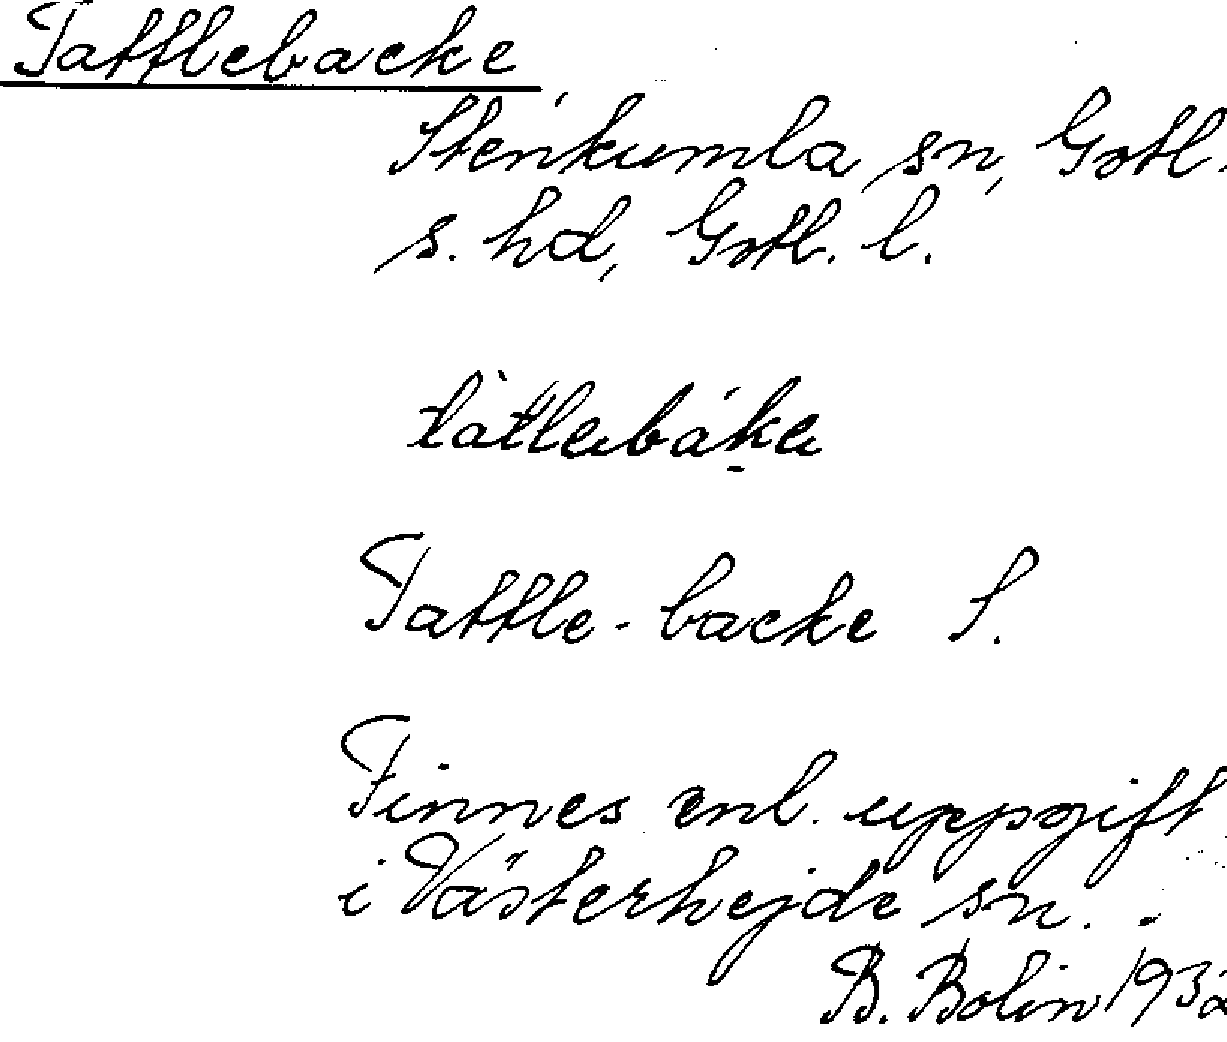 Tattlebacke
Stenkumla sn, Gotl.
s. hd, Gotl. l.
tàtlebáke
Tattle-backe S.
Finnes enl. uppgift
i Västerhejde sn.
B. Bolin 1932